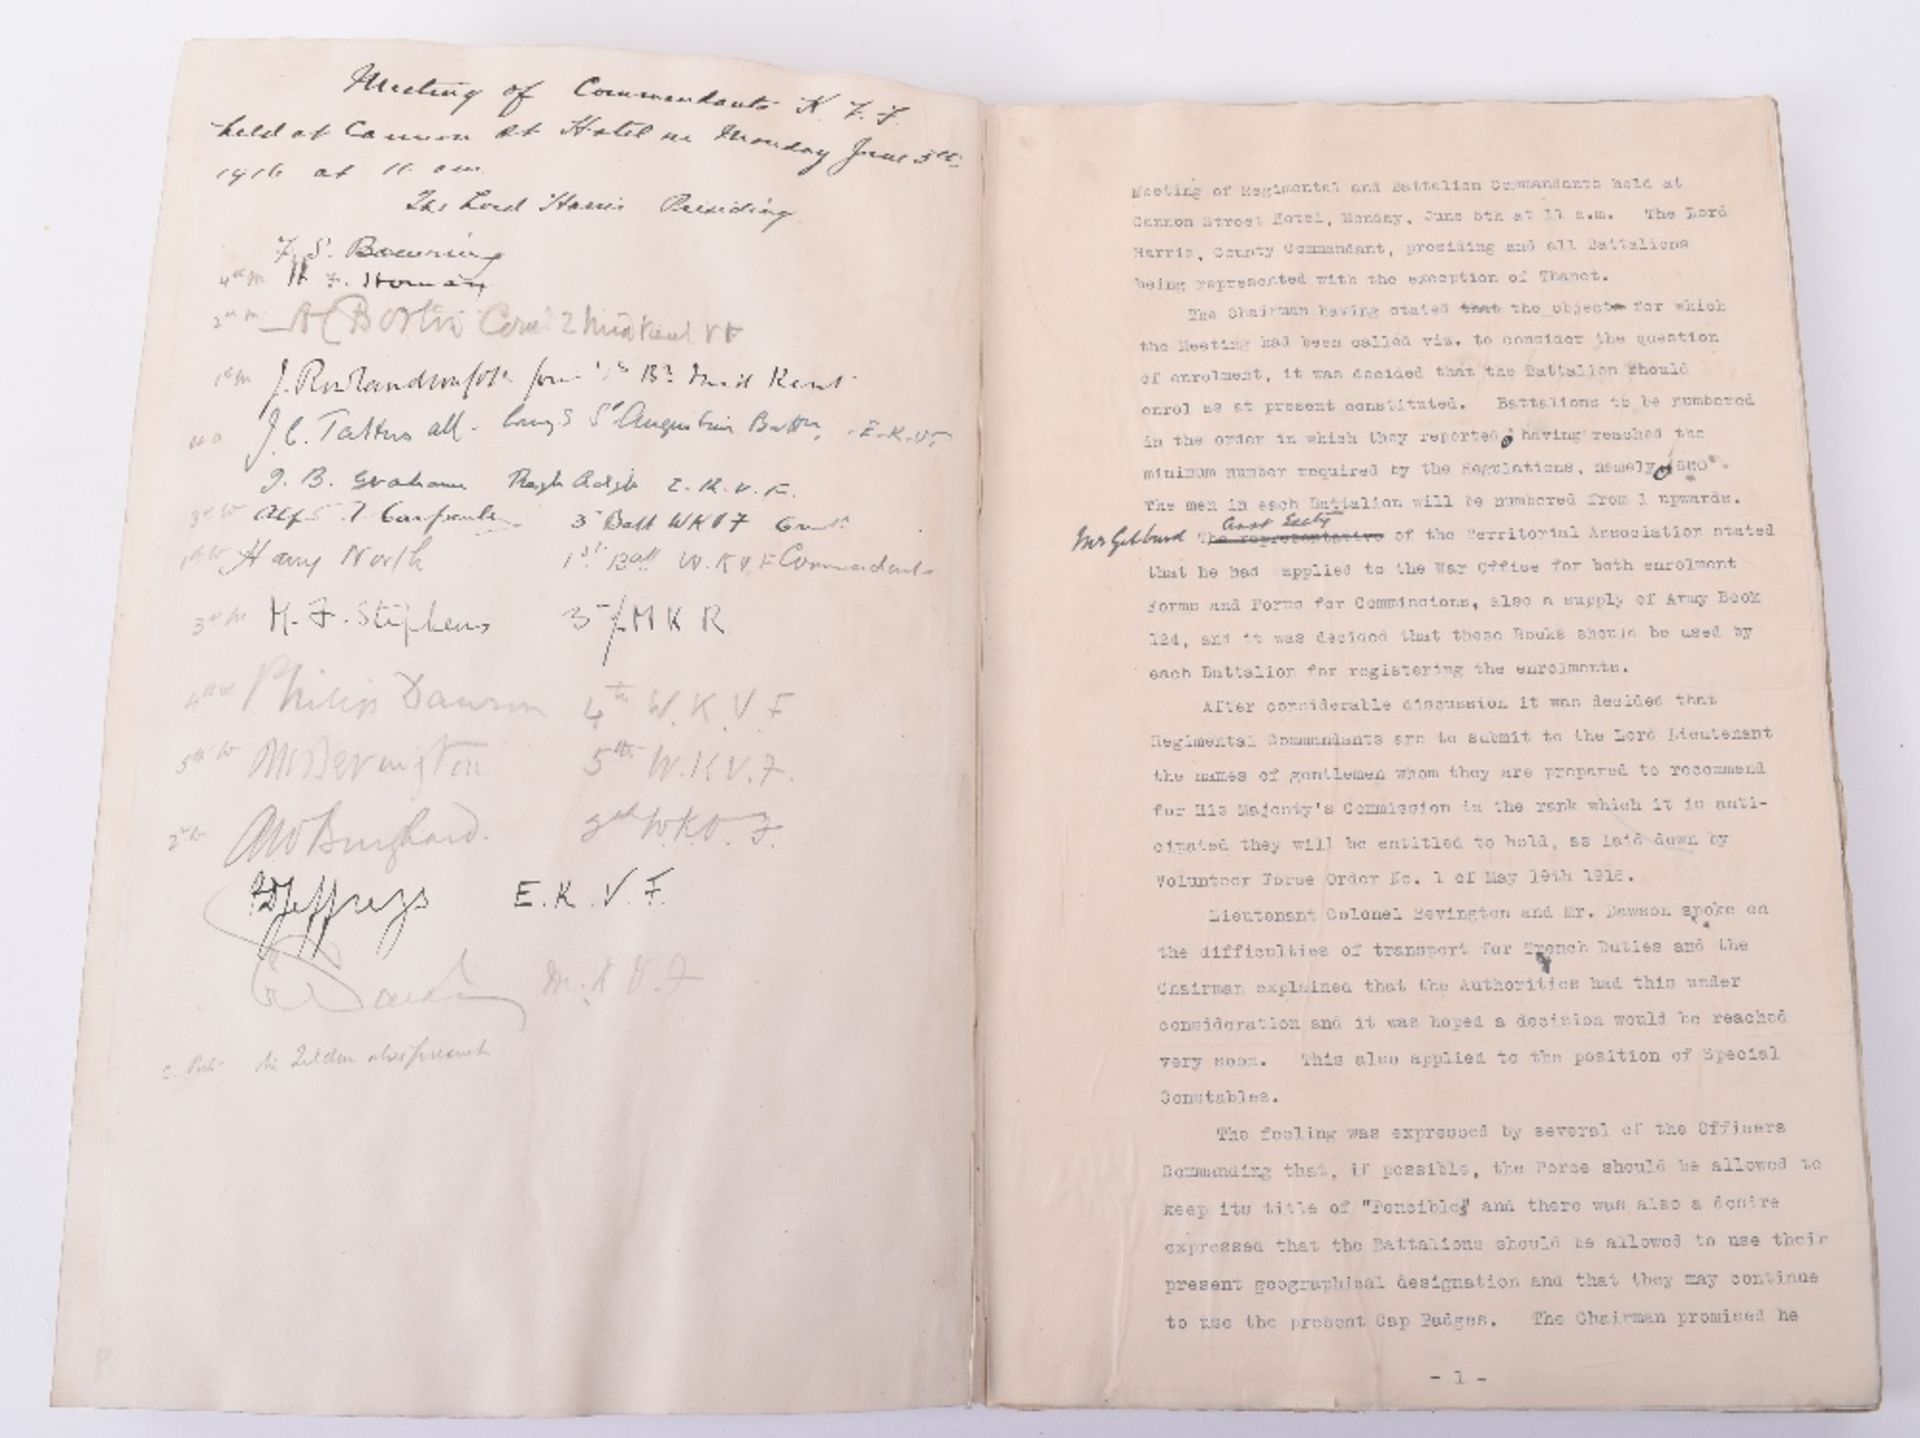 Meeting of Commandants K. F. F.
held at Cannon St Hotel on Monday June 5th
1916 at 11 am
The Lord Harris Presiding
F. S. Bowning
4th M H. F. Homan
2nd M 2 Mid Kent VF
1st M J. for 1st Bn Mid Kent
J. C. Tattersall. St Augustine Battn, E.K.V.F.
J. B. Graham E.K.V.F.
3rd W 3rd Batt WKVF
1st W Harry North 1st Batt W.K.V.F Commandant
3rd M H. F. Stephens 3rd/M K R
4th W Philip Dawson 4th W.K.V.F
5th W Bevington 5th W.K.V.F.
2nd W 2nd W.K.V.F.
Jeffreys E.K.V.F.
M.K.V.F
also present
Meeting of Regimental and Battalion Commandants held at
Cannon Street Hotel, Monday, June 5th at 11 a.m. The Lord
Harris, County Commandant, presiding and all Battalions
being represented with the exception of Thanet.
The Chairman having stated that the objects for which
the Meeting had been called viz. to consider the question
of enrolment, it was decided that the Battalion should
enrol as at present constituted. Battalions to be numbered
in the order in which they reported having reached the
minimum number required by the Regulations, namely "600".
The men in each Battalion will be numbered from 1 upwards.
Asst Secty
Mr The representative of the Territorial Association stated
that he had applied to the War Office for both enrolment
Forms and Forms for Commissions, also a supply of Army Book
124, and it was decided that these Books should be used by
each Battalion for registering the enrolments.
After considerable discussion it was decided that
Regimental Commandants are to submit to the Lord Lieutenant
the names of gentlemen whom they are prepared to recommend
for His Majesty's Commission in the rank which it is anti-
cipated they will be entitled to hold, as laid down by
Volunteer Force Order No. 1 of May 19th 1916.
Lieutenant Colonel Bevington and Mr. Dawson spoke on
the difficulties of transport for Trench Duties and the
Chairman explained that the Authorities had this under
consideration and it was hoped a decision would be reached
very soon. This also applied to the position of Special
Constables.
The feeling was expressed by several of the Officers
Commanding that, if possible, the Force should be allowed to
keep its title of "Fencible" and there was also a desire
expressed that the Battalions should be allowed to use their
present geographical designation and that they may continue
to use the present Cap Badges. The Chairman promised he
- 1 -